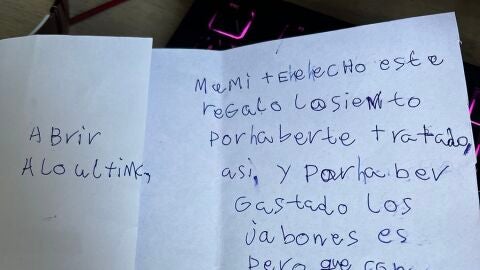 ABrir
ALO ULtiMO,
MaMi +EHeHECHO este
reGALO LOsieNto
porhaberte +ratado,
asi, Y porhaber
Gastado LOS
jabones es
pero que con